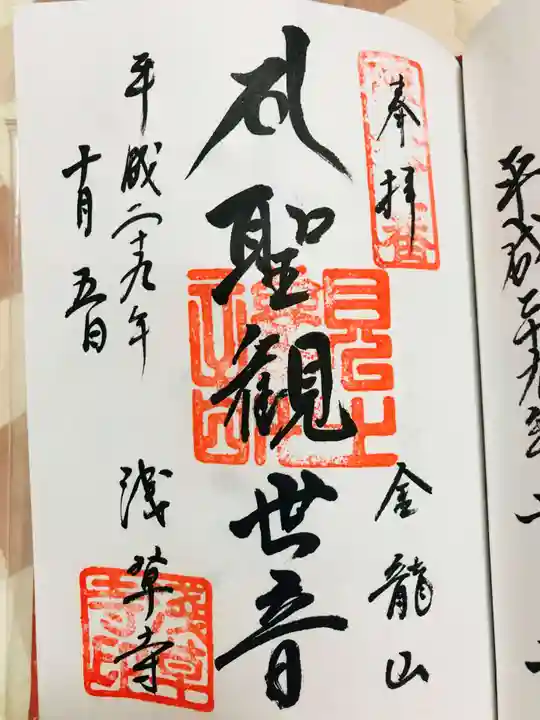 奉拝
金龍山
聖観世音
平成二十九年
十月五日
浅草寺